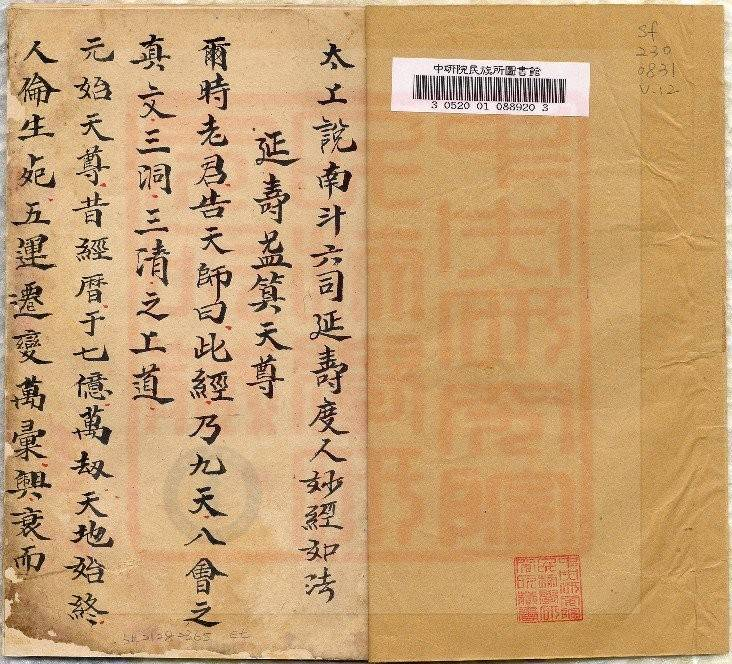 sf
230
0831
V.12
中研院民族所圖書館
3 0520 01 088920 3
太上說南斗六司延壽度人妙經如法
延壽益筭天尊
爾時老君告天師曰此經乃九天八會之
真文三洞三清之上道
元始天尊昔經曆于七億萬劫天地始終
人倫生死五運遷變萬彙興衰而